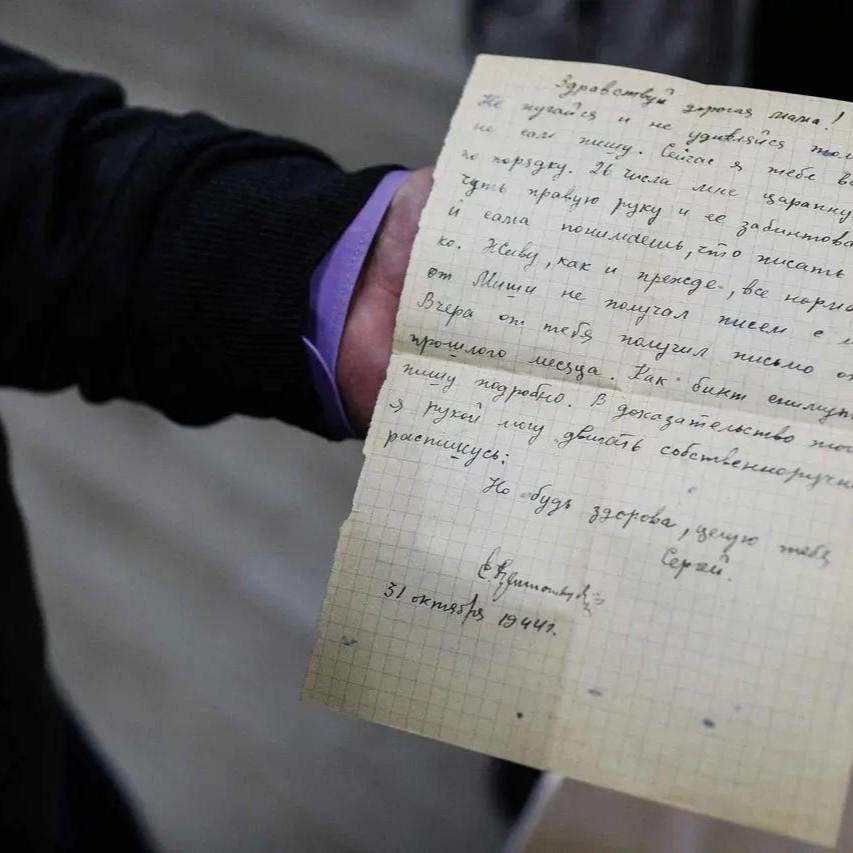 Здравствуй дорогая мама!
Не пугайся и не удивляйся
не сам пишу. Сейчас я тебе
по порядку. 26 числа мне царапну
чуть правую руку и её забинтова
й сама понимаешь, что писать
ко. Живу, как и прежде, все норма
от Миши не получал писем с
Вчера от тебя получил письмо от
прошлого месяца. Как бинт снимут
пишу подробно. В доказательство
я рукой могу двигать собственноручн
распишусь:
Но будь здорова, целую тебя
Сергей.
31 октября 1944г.